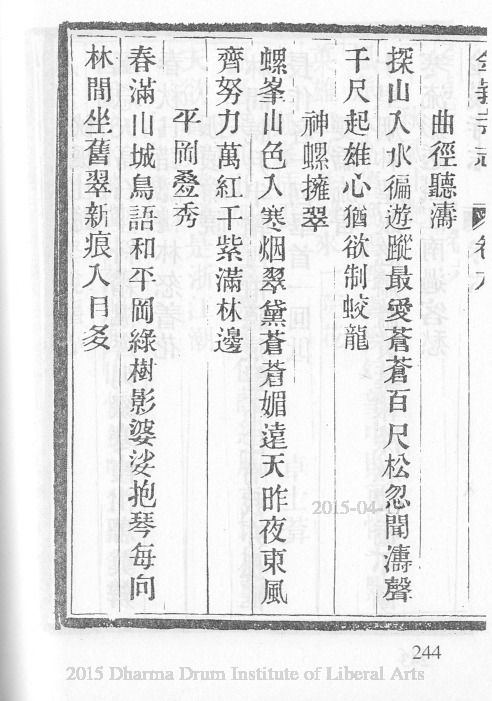 曲徑聽濤
探山入水徧遊蹤最愛蒼蒼百尺松忽聞濤聲
千尺起雄心猶欲制蛟龍
神螺擁翠
螺峯山色入寒烟翠黛蒼蒼媚遠天昨夜東風
齊努力萬紅千紫滿林邊
平岡叠秀
春滿山城鳥語和平岡綠樹影婆娑抱琴每向
林間坐舊翠新痕入目多
244
2015-04-
2015 Dharma Drum Institute of Liberal Arts